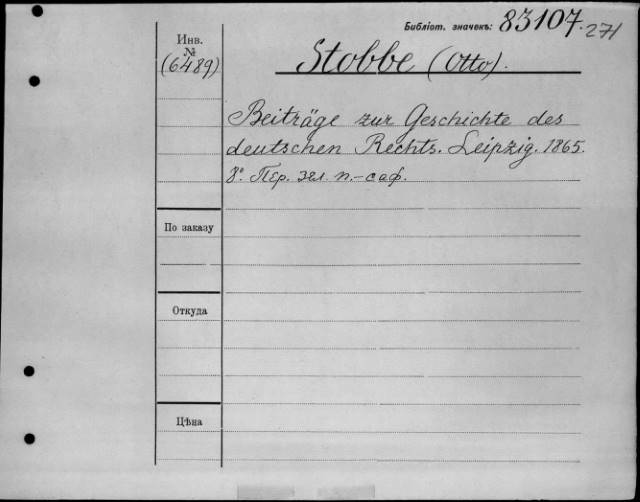 Библіот. значекъ: 83107. 271
Инв.
№
(6489)
Stobbe (Otto).
Beiträge zur Geschichte des
deutschen Rechts. Leipzig. 1865.
8º. Пер. зел. п.-саф.
По заказу
Откуда
Цѣна